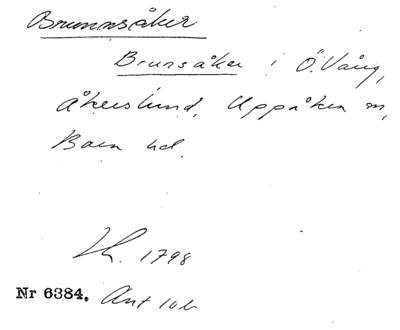 Brunnsåker
Brunsåker i Ö. Vång,
Åkerslund, Uppåkra sn,
Bara hd.
1798
Nr 6384. Ant 10b